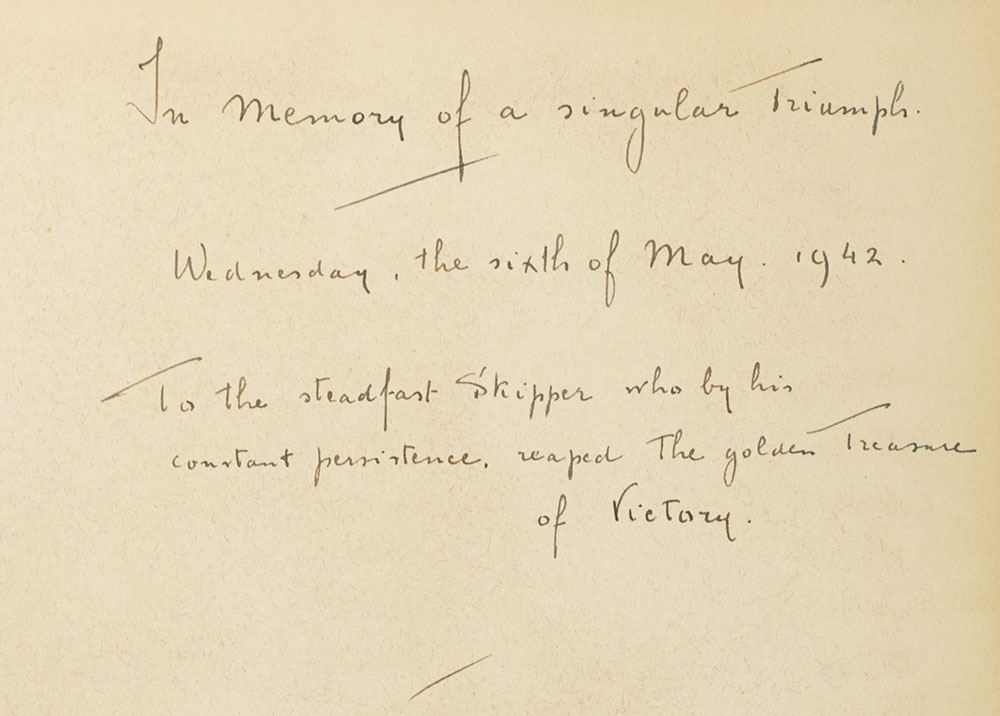 In Memory of a singular Triumph.
Wednesday, the sixth of May. 1942.
To the steadfast Skipper who by his
constant persistence, reaped the golden Treasure
of Victory.